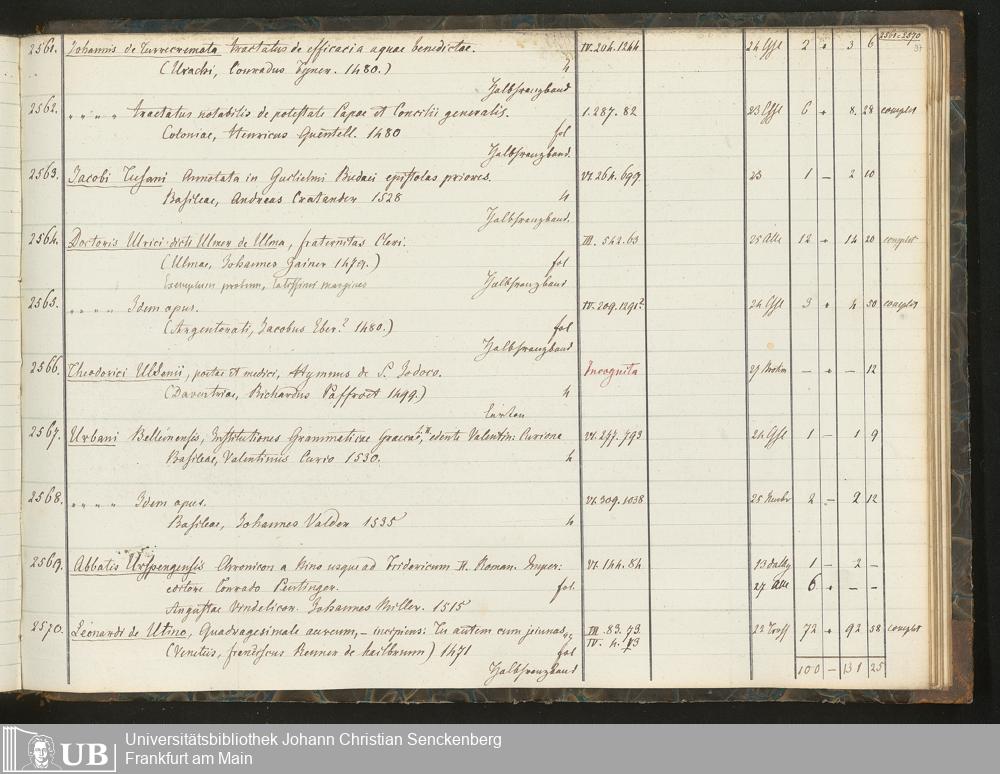 2561-2570
2561. Johannis de Turrecremata tractatus de efficacia aquae benedictae. IV. 204. 1244 2 3 6
(Urachi, Conradus Fyner. 1480.) 4
Halbfranzband
2562. " " " " tractatus notabilis de potestate Papae et Concilii generalis. 1. 287. 82 6 8. 28 complet
Coloniae, Henricus Quentell. 1480 fol
Halbfranzband.
2563. Jacobi Tusani Annotata in Guclielmi Budaei epistolas priores. VI. 264. 699 23 1 — 2 10
Basileae, Andreas Cratander 1528 4
Halbfranzband.
2564. Doctoris Ulrici dicti Ulmer de Ulma, fraternitas Cleri. III. 542. 63 12 14 20 complet
(Ulmae, Johannes Zainer 1479.) fol
Exemplum probum, latissimi margines Halbfranzband
2565. " " " " Idem opus. IV. 209. 1291² 3 4 50 complet
(Argentorati, Jacobus Eber? 1480.) fol
Halbfranzband
2566. Theodorici Ulsenii, poetae et medici, Hymnus de S. Jodoco. Incognita — — 12
(Daventriae, Richardus Paffroet 1499.) 4
Carton
2567. Urbani Bellunensis, Institutiones Grammaticae Graecae, edente Valentin: Curione VI. 277. 793 1 — 1 9
Basileae, Valentinus Curio 1530. 4
2568. " " " " Idem opus. VI. 309. 1038 2 — 2 12
Basileae, Johannes Valder 1535 4
2569. Abbatis Urspergensis Chronicon a Nino usque ad Fridericum II. Roman. Imper: VI. 144. 84 1 — 2 —
editore Conrado Peutinger. fol. 6 — —
Augustae Vindelicor. Johannes Miller. 1515
2570. Leonardi de Utino, Quadragesimale aureum, – incipiens: Tu autem cum jeiunas III. 83. 73 72 92 58 complet
(Venetiis, franciscus Renner de hailbrunn) 1471 fol IV. 4. 73
Halbfranzband 100 — 131 25
Universitätsbibliothek Johann Christian Senckenberg
Frankfurt am Main
UB